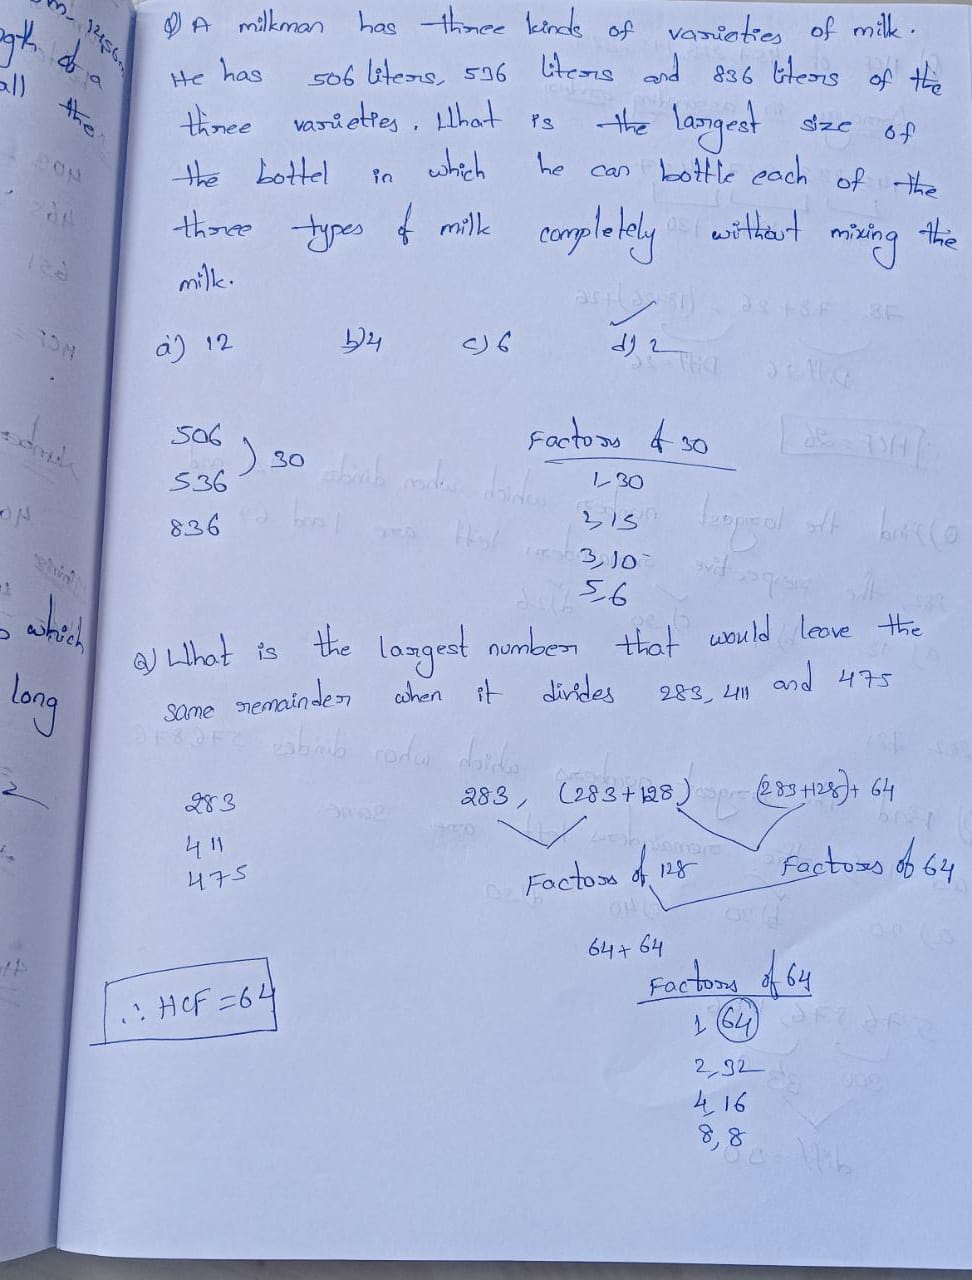 Q) A milkman has three kinds of varieties of milk.
He has 506 liters, 536 liters and 836 liters of the
three varieties. What is the largest size of
the bottel in which he can bottle each of the
three types of milk completely without mixing the
milk.
a) 12 b) 4 c) 6 d) 2
506
536 ) 30
836
Factors of 30
1, 30
2, 15
3, 10
5, 6
Q) What is the largest number that would leave the
same remainder when it divides 283, 411 and 475
283
411
475
283, (283+128) (283+128)+ 64
Factors of 128 Factors of 64
64+ 64
Factors of 64
1 64
2, 32
4, 16
8, 8
∴ HCF = 64
of a
all the
which
long